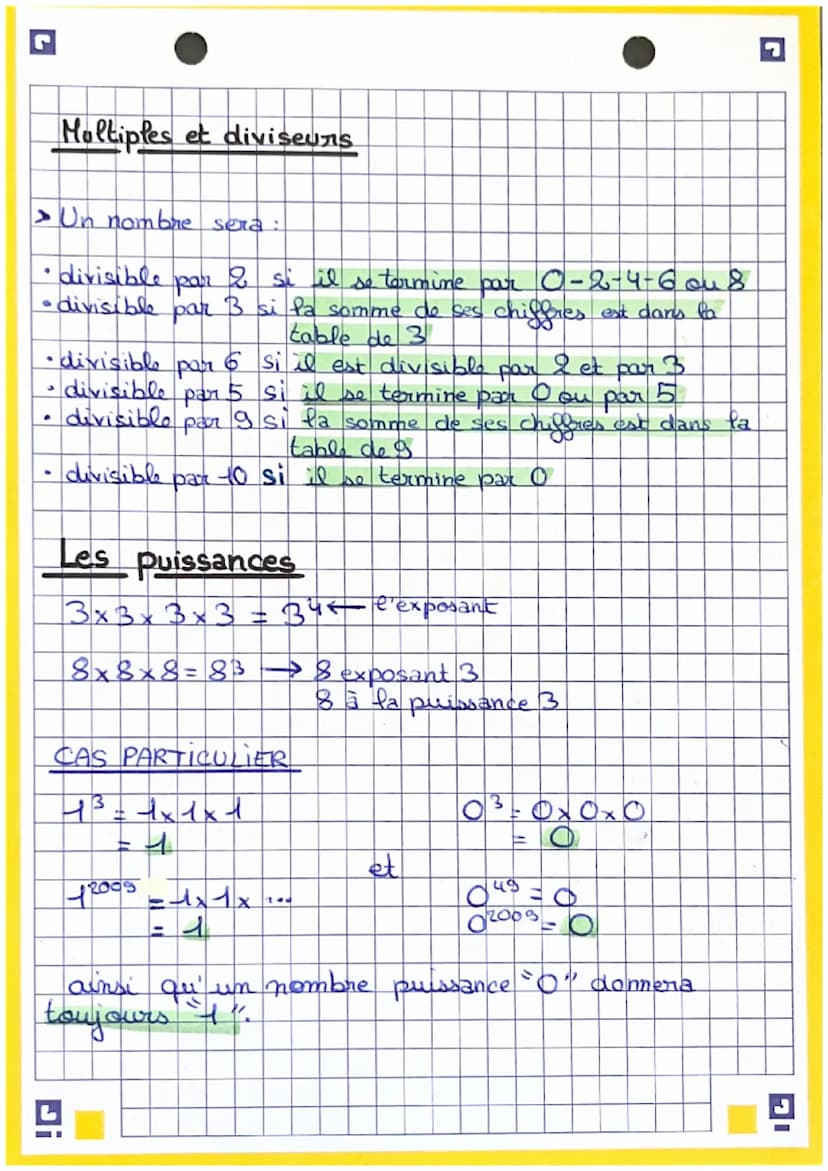 Multiples et diviseurs
> Un nombre sera :
• divisible par 2 si il se termine par 0-2-4-6 ou 8
• divisible par 3 si la somme de ses chiffres est dans la
table de 3
• divisible par 6 si il est divisible par 2 et par 3
• divisible par 5 si il se termine par 0 ou par 5
• divisible par 9 si la somme de ses chiffres est dans la
table de 9
• divisible par 10 si il se termine par 0
Les puissances
3×3×3×3 = 3⁴ ← l'exposant
8×8×8 = 8³ → 8 exposant 3
8 à la puissance 3
CAS PARTICULIER
1³ = 1×1×1 0³ = 0×0×0
= 1 = 0
et
1²⁰⁰⁹ = 1×1× ... 0⁴⁹ = 0
= 1 0²⁰⁰⁹ = 0
ainsi qu'un nombre puissance "0" donnera
toujours "1".